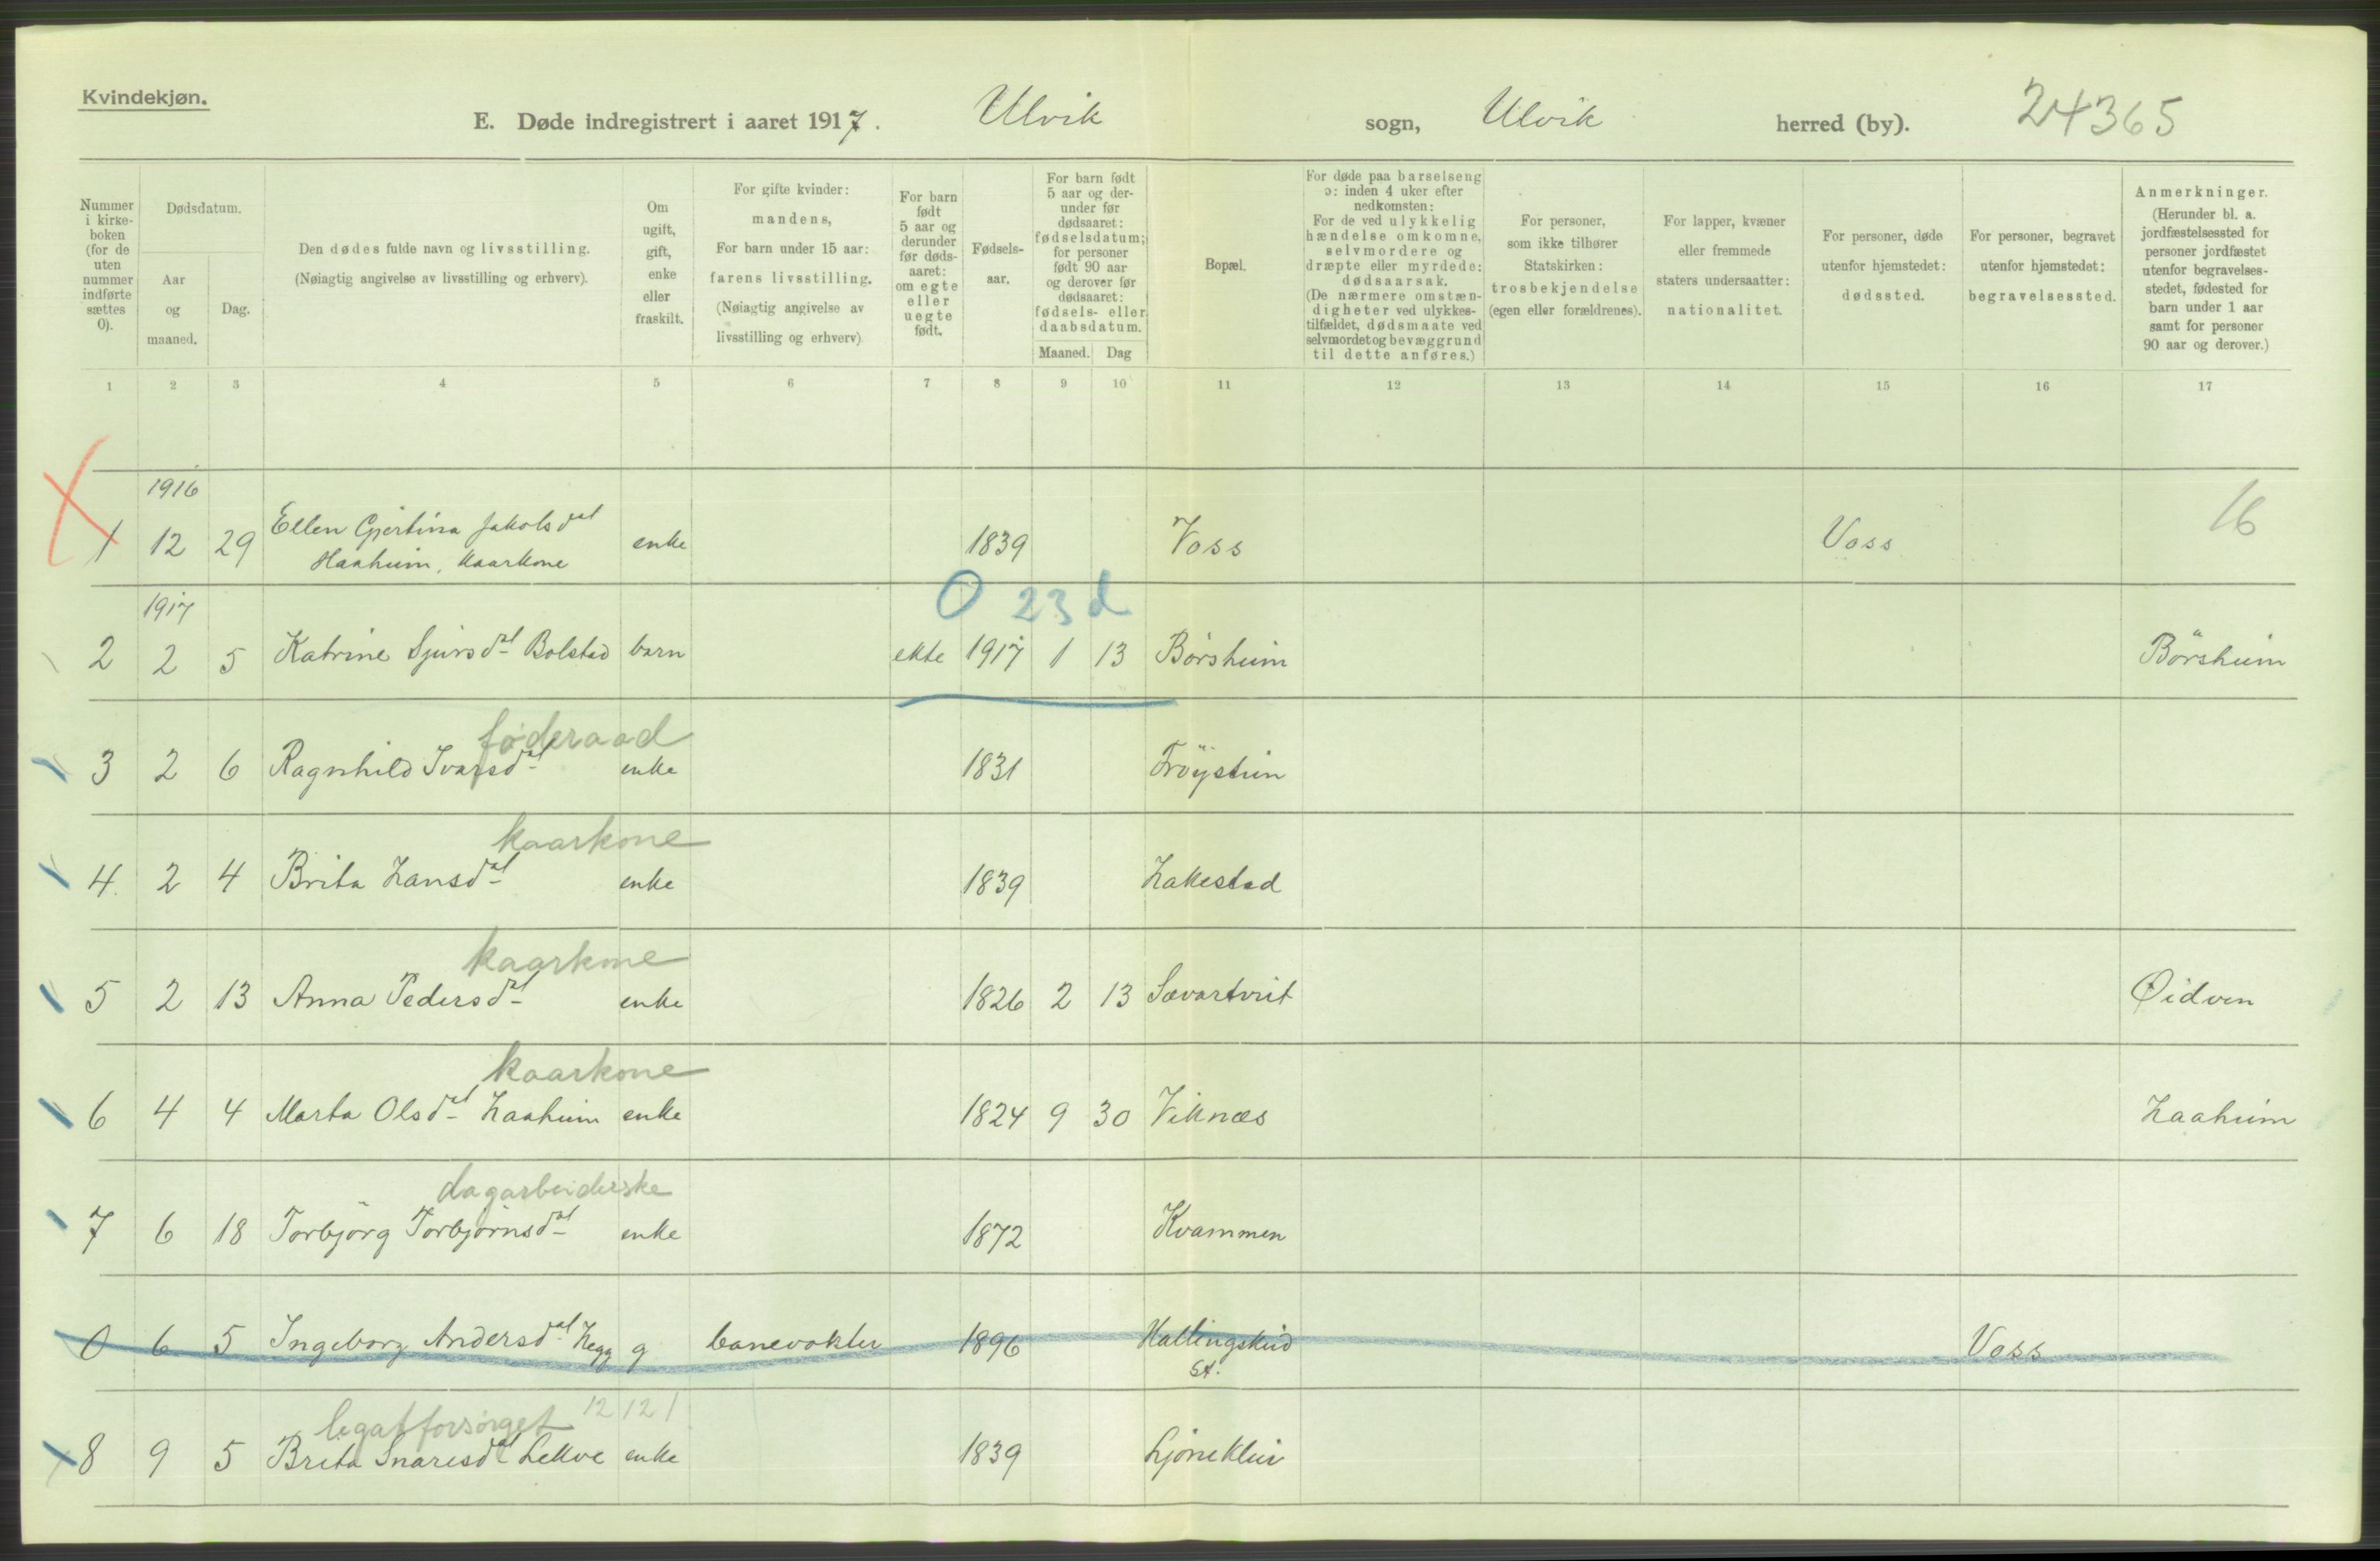 Kvindekjøn.
E. Døde indregistrert i aaret 1917. Ulvik sogn, Ulvik herred (by). 24365
Nummer i kirke-boken (for de uten nummer indførte sættes 0).
Dødsdatum.
Aar og maaned.
Dag.
Den dødes fulde navn og livsstilling.
(Nøiagtig angivelse av livsstilling og erhverv).
Om ugift, gift, enke eller fraskilt.
For gifte kvinder: mandens, For barn under 15 aar: farens livsstilling. (Nøiagtig angivelse av livsstilling og erhverv)
For barn født 5 aar og derunder før døds-aaret: om egte eller uegte født.
Fødsels-aar.
For barn født 5 aar og der-under før dødsaaret: fødselsdatum; for personer født 90 aar og derover før dødsaaret: fødsels- eller daabsdatum.
Maaned. Dag
Bopæl.
For døde paa barselseng ɔ: inden 4 uker efter nedkomsten: For de ved ulykkelig hændelse omkomne, selvmordere og dræpte eller myrdede: dødsaarsak. (De nærmere omstæn-digheter ved ulykkes-tilfældet, dødsmaate ved selvmordet og bevæggrund til dette anføres.)
For personer, som ikke tilhører Statskirken: trosbekjendelse (egen eller forældrenes).
For lapper, kvæner eller fremmede staters undersaatter: nationalitet.
For personer, døde utenfor hjemstedet: dødssted.
For personer, begravet utenfor hjemstedet: begravelsessted.
Anmerkninger. (Herunder bl. a. jordfæstelsessted for personer jordfæstet utenfor begravelses-stedet, fødested for barn under 1 aar samt for personer 90 aar og derover.)
1 2 3 4 5 6 7 8 9 10 11 12 13 14 15 16 17
1916
1 12 29 Ellen Gjertina Jakobsdat Haaheim, kaarkone enke 1839 Voss Voss 16
0 23 d
1917
2 2 5 Katrine Sjursdat Bolstad barn ekte 1917 1 13 Börsheim Börsheim
føderaad
3 2 6 Ragnhild Ivarsdat enke 1831 Tröystein
kaarkone
4. 2 4 Brita Hansdat enke 1839 Hakestad
kaarkone
5 2 13 Anna Pedersdat enke 1826 2 13 Sævartveit Øidven
kaarkone
6 4 4 Marta Olsdat Haaheim enke 1824 9 30 Viknæs Haaheim
dagarbeiderske
7 6 18 Torbjörg Torbjörnsdat enke 1872 Kvammen
0 6 5 Ingeborg Andersdat Hegg g banevokter 1896 Hallingskeid St. Voss
legatforsørget 12 12 1
8 9 5 Brita Snaresdat Lekve enke 1839 Ljoneklei